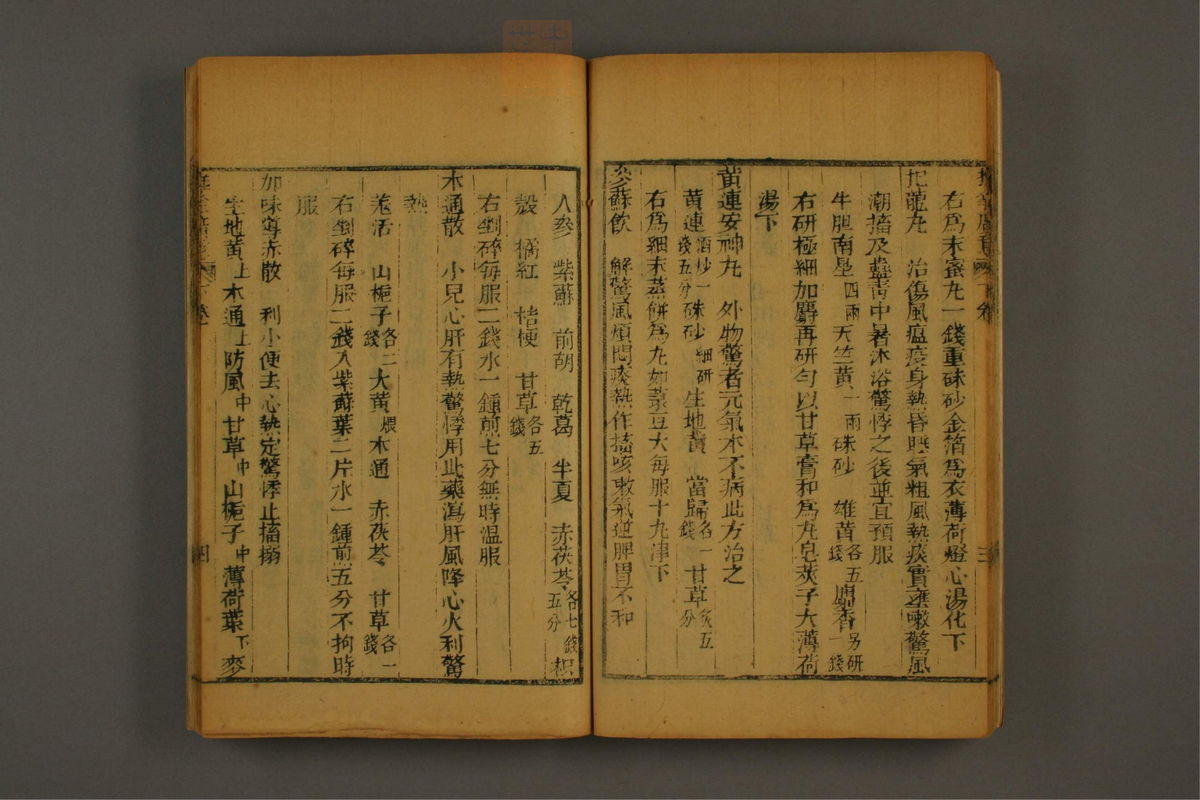 右爲末蜜丸一錢重硃砂金箔爲衣薄荷燈心湯化下
抱龍丸　治傷風瘟疫身熱昏睡氣粗風熱痰實壅嗽驚風
潮搐及蠱毒中暑沐浴驚悸之後並宜預服
牛胆南星四兩天竺黄一兩硃砂　雄黄各五錢麝香另研一錢
右研極細加麝再研勻以甘草膏和爲丸皂莢子大薄荷
湯下
黄連安神丸　外物驚者元氣本不病此方治之
黄連酒炒錢五分一硃砂細研生地黄　當歸各一錢甘草炙五分
右爲細末蒸餅爲丸如菉豆大每服十丸津下
參蘇飲　解驚風煩悶痰熱作搐咳嗽氣逆脾胃不和
人參　紫蘇　前胡　乾葛　半夏　赤茯苓各七錢五分枳
殼　橘紅　桔梗　甘草各五錢
右剉碎每服二錢水一鍾煎七分無時温服
木通散　小兒心肝有熱驚悸用此藥瀉肝風降心火利驚
熱
羗活　山梔子各二錢大黄煨木通　赤茯苓　甘草各一錢
右剉碎每服二錢入紫蘇葉二片水一鍾煎五分不拘時
服
加味導赤散　利小便去心熱定驚悸止搐搦
生地黄上木通上防風中甘草中山梔子中薄荷葉下麥